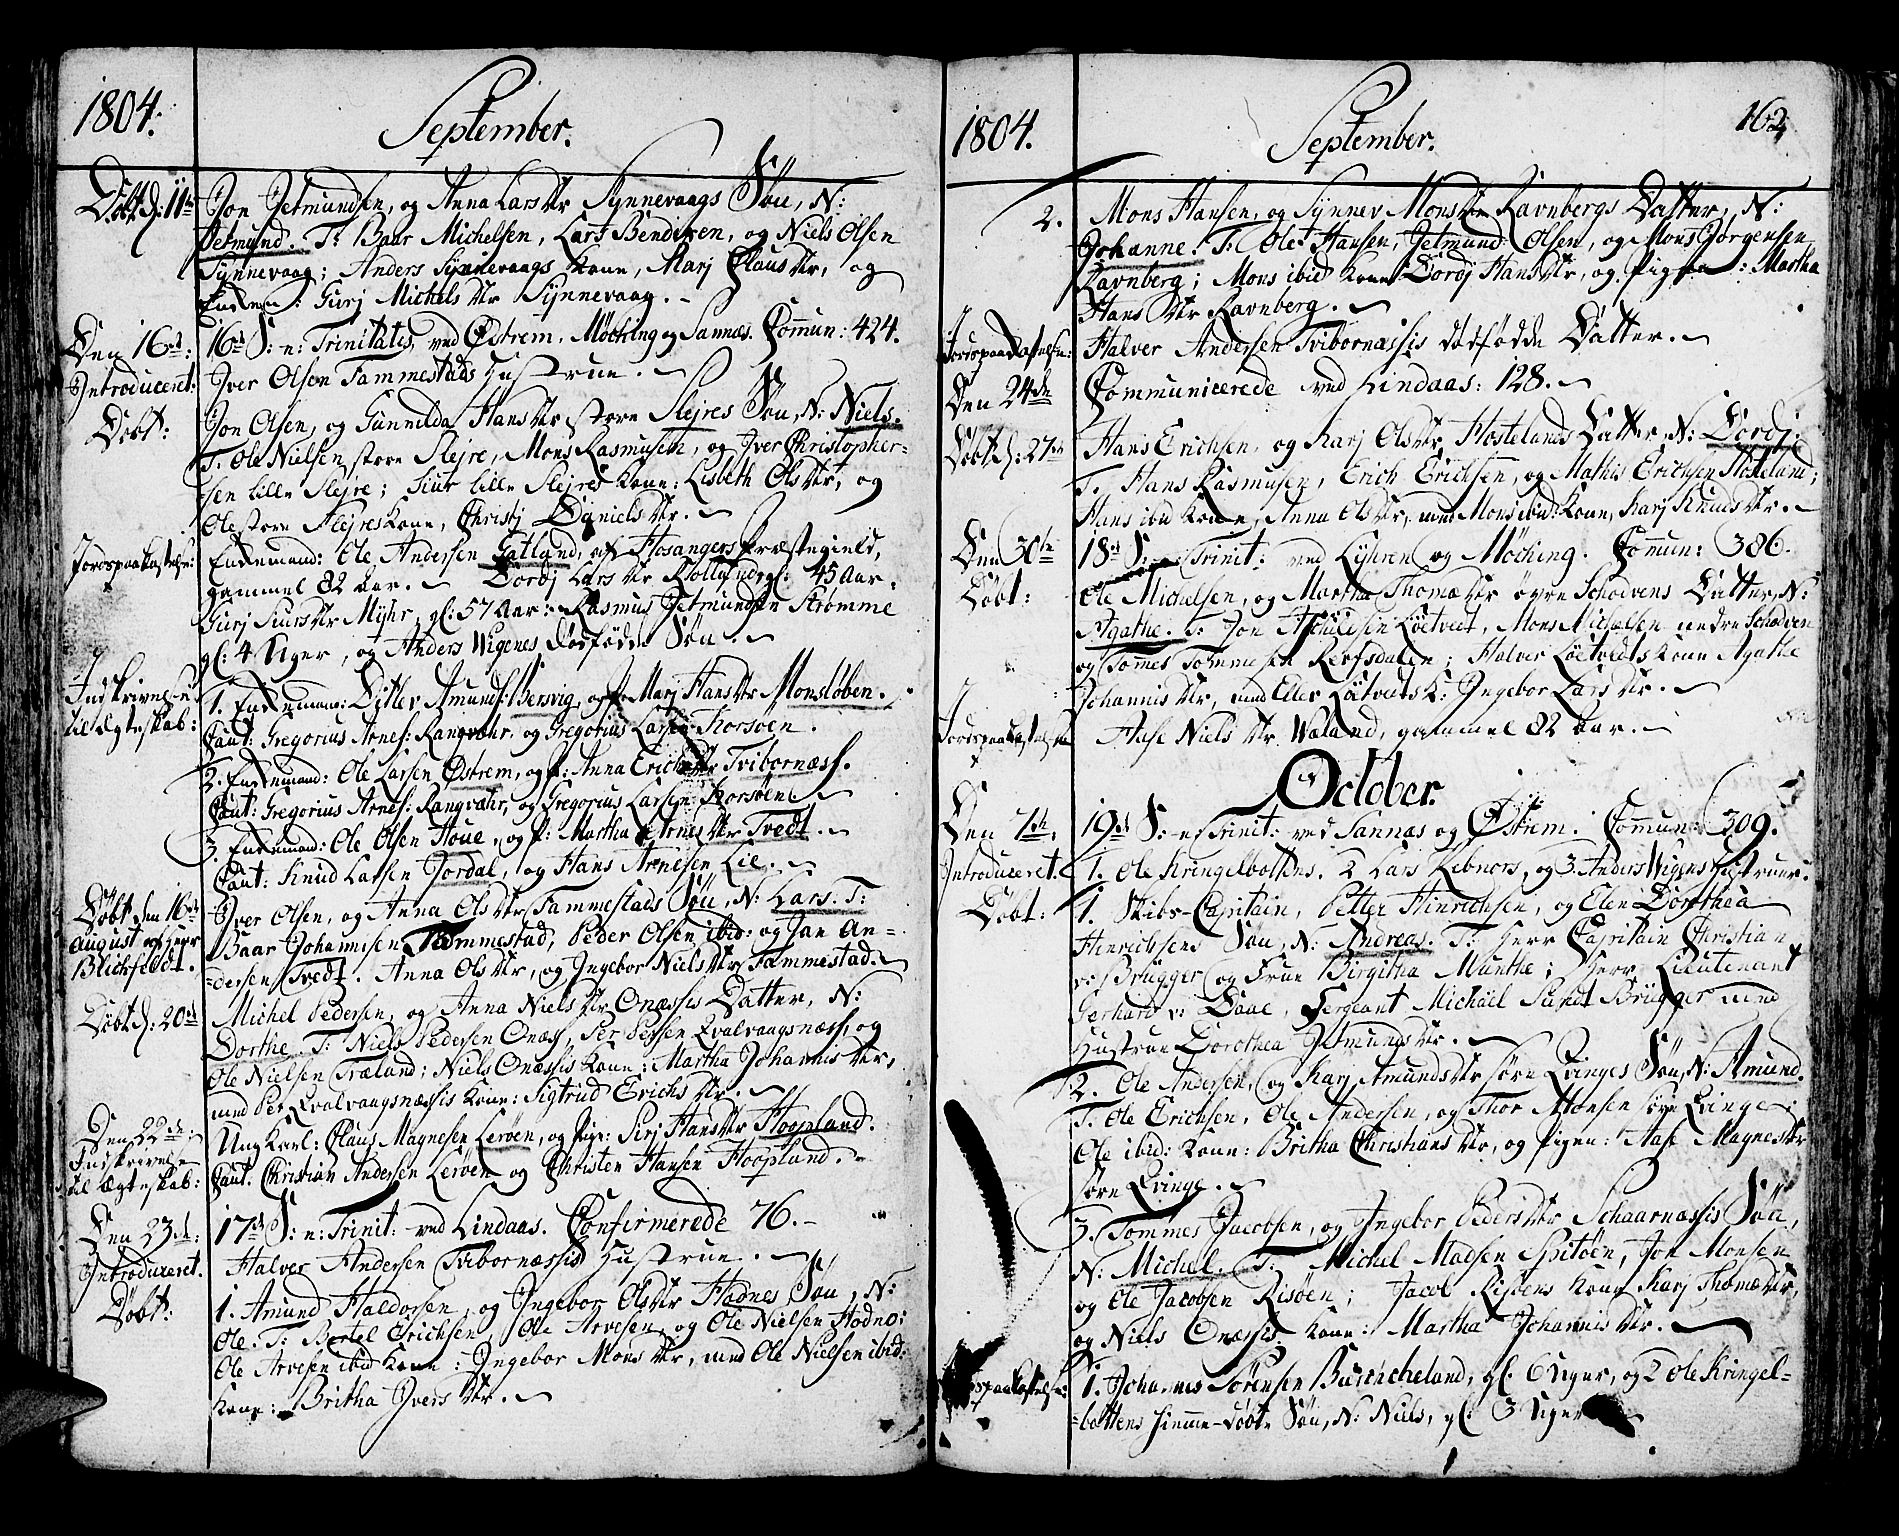 1804.
September.
Døbt d: 11te
Jon Jetmundsen, og Anna Lars Dtr Synnevaags Søn, N:
Jetmund. T: Baar Michelsen, Lars Bendixen, og Niels Olsen
Synnevaag; Anders Synnevaags Kone, Marj Claus Dtr, og
Gurj Michels Dtr Synnevaag.
Den 16de:
16de S: n: Trinitatis, ved Østrem, Møching og Sannæs. Commun: 424.
Introduceret:
Iver Olsen Fammestads Hustrue.
Døbt:
Jon Olsen, og Gunnilda Hans Dtr store Slejres Søn, N: Niels.
T. Ole Nielsen store Slejre, Mons Rasmusen, og Iver Christopher-
-sen lille Slejre; Siur lille Slejres Kone: Lisbeth Ols Dtr, og
Ole store Slejres Kone, Christj Daniels Dtr.
Jordspaakastelse:
Enkemand: Ole Andersen Gatland, af Hosangers Præstegield,
gammel 82 Aar. Dordj Lars Dtr gl: 45 Aar.
Gurj Siurs Dtr Myhr, gl: 57 Aar. Rasmus Jetmundsen Strømme
gl: 4 Uger, og Anders Wigenes dødfødde Søn.
Indskrivelse
til Ægteskab:
1. Enkemand: Ditlev Amunds: Hersvig, og P: Marj Hans Dtr Monsløben.
Caut: Gregorius Arnes: Rangvahr, og Gregorius Larsen Korsøen.
2. Enkemand: Ole Larsen Østrem, og P: Anna Erichs Dtr Tvibornæss.
Caut: Gregorius Arnes: Rangvahr, og Gregorius Larsen Korsøen.
3. Enkemand: Ole Olsen Houe, og P: Martha Arnes Dtr Tvedt.
Caut: Knud Larsen Jordal, og Hans Arnesen Lie.
Døbt den 16de
August af Herr
Blichfeldt.
Iver Olsen, og Anna Ols Dtr Fammestads Søn, N: Lars. T:
Baar Johannisen Fammestad, Peder Olsen ibid: og Jan An=
=dersen Tvedt. Anna Ols Dtr, og Ingebor Niels Dtr Fammestad.
Døbt d: 20de
Michel Pedersen, og Anna Niels Dtr Onæssis Datter, N:
Dorthe. T: Niels Pedersen Onæss, Per Persen Qvalvaagsnæss, og
Ole Nielsen Træland; Niels Onæssis Kone: Martha Johannis Dtr,
med Per Qvalvaagsnæssis Kone: Sigtrud Erichs Dtr.
Den 22de:
Indskrivelse
til Ægteskab:
Ung Karl: Claus Magnesen Lerøen, og Pige: Sirj Hans Dtr Hoopland.
Caut. Christian Andersen Lerøen og Christen Hansen Hoopland.
Den 23de:
17de S: n: Trinit: ved Lindaas. Confirmerede 76.
Introduceret.
Halver Andersen Tvibornæssis Hustrue.
Døbt:
1. Amund Haldorsen, og Ingebor Ols Dtr Hodnes Søn, N:
Ole. T: Bertel Erichsen, Ole Arvesen, og Ole Nielsen Hodne;
Ole Arvesen ibid Kone: Ingebor Mons Dtr, med Ole Nielsen ibid:
Kone: Britha Ivers Dtr.
1804.
September.
162
2. Mons Hansen, og Synnev Mons Dtr Ravnbergs Datter, N:
Johanne. T: Ole Hansen, Jetmund Olsen, og Mons Jørgensen
Ravnberg; Mons ibid Kone Dordj Hans Dtr, og Pigen: Martha
Hans Dtr Ravnberg.
Jordspaakastelse:
Halver Andersen Tvibornæssis dødfødde Datter.
Den 24de
Communicerede ved Lindaas: 128.
Døbt d: 27de
Hans Erichsen, og Karj Ols Dtr Hostelands Datter, N: Dordj.
T. Hans Rasmusen, Erich Erichsen, og Mathis Erichsen Hosteland;
Hans ibid Kone, Anna Ols Dtr, med Mons ibid: Kone, Karj Knuds Dtr.
Den 30te
18de S: n: Trinit: ved Lyhren og Møching. Commun: 386.
Døbt:
Ole Michelsen, og Martha Thomæ Dtr øvre Schodvens Datter, N:
Agathe. T: Jon Aschildsen Løtveit, Mons Michelsen nedre Schodven
og Tommes Tommesen Refsdalen; Halver Løtvedts Kone Agathe
Johannis Dtr, med Løtvedts K: Ingebor Lars Dtr.
Jordspaakastelse
Aase Niels Dtr Waland, gammel 82 Aar.
October.
Den 7de,
19de S: n: Trinit: ved Sannæs og Østrem. Commun: 309.
Introduceret.
1. Ole Kringelbottens. 2 Lars Rebnors, og 3. Anders Wigens Hustruer.
Døbt:
1. Skibs-Capitain, Petter Hinrichsen, og Elen Dorthea
Hinrichsens Søn, N: Andreas. T: Herr Capitain Christian
v: Brügger og Frue Birgitha Munthe; Herr Lieutenant
Gerhard v: Daae, Sergeant Michael Sundt Brügger med
Hustrue Dorothea Jetmunds Dtr.
2. Ole Andersen, og Karj Amunds Dtr søre Qvinges Søn, N: Amund.
T. Ole Erichsen, Ole Andersen, og Thor Monsen søre Qvinge;
Ole ibid: Kone: Britha Christians Dtr, og Pigen: Aase Magnes Dtr
søre Qvinge.
3. Tommes Jacobsen, og Ingebor Peders Dtr Schaarnæssis Søn,
N: Michel. T: Michel Madsen Spitøen, Jon Monsen
og Ole Jacobsen Risøen; Jacob Risøens Kone Karj Thomæ Dtr,
og Niels Onæssis Kone: Martha Johannis Dtr.
1. Johannes Sørensen gl: 6 Uger, og 2 Ole Kringel-
-bottens hjemme-døbte Søn, N: Niels, gl: 3 Uger